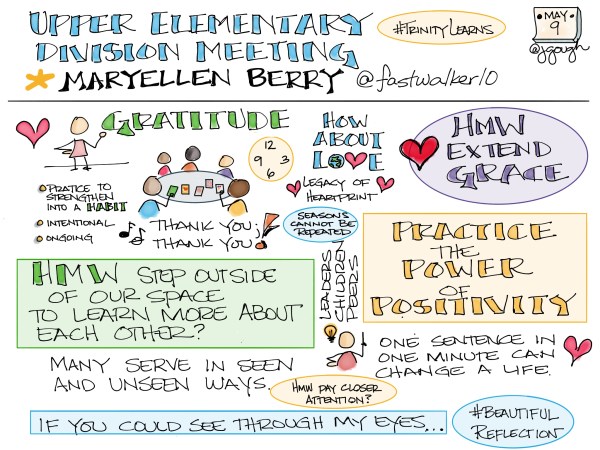 UPPER ELEMENTARY
DIVISION MEETING
#TRINITYLEARNS
MAY
9
@jgough
MARYELLEN BERRY @fastwalker10
GRATITUDE
PRATICE TO
STRENGTHEN
INTO A HABIT
INTENTIONAL
ONGOING
12
9 3
6
THANK YOU,
THANK YOU!
HOW
ABOUT
LOVE
LEGACY OF
HEARTPRINT
SEASONS
CANNOT BE
REPEATED
HMW
EXTEND
GRACE
LEADERS
CHILDREN
PEERS
PRACTICE
THE
POWER
OF
POSITIVITY
HMW STEP OUTSIDE
OF OUR SPACE
TO LEARN MORE ABOUT
EACH OTHER?
ONE SENTENCE IN
ONE MINUTE CAN
CHANGE A LIFE.
MANY SERVE IN SEEN
AND UNSEEN WAYS.
HMW PAY CLOSER
ATTENTION?
IF YOU COULD SEE THROUGH MY EYES...
#BEAUTIFUL
REFLECTION